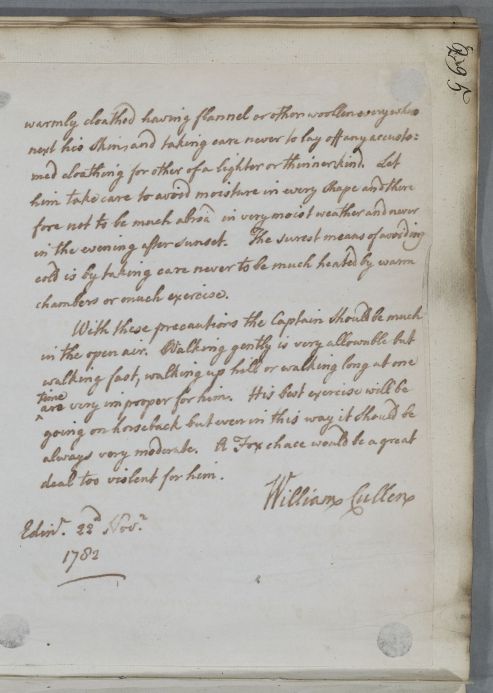 295
warmly cloathed having flannel or other woollen every where
next his Skin, and taking care never to lay off any accusto=
med cloathing for other of a lighter or thinner kind. Let
him take care to avoid moisture in every shape and there
fore not to be much abroad in very moist weather and never
in the evening after sunset. The surest means of avoiding
cold is by taking care never to be much heated by warm
chambers or much exercise.
With these precautions the Captain should be much
in the open air. Walking gently is very allowable but
walking fast, walking up hill or walking long at one
time
are very improper for him. His best exercise will be
going on horseback but even in this way it should be
always very moderate. A Fox chace would be a great
deal too violent for him.
William Cullen
Edinr. 22d Novr.
1782